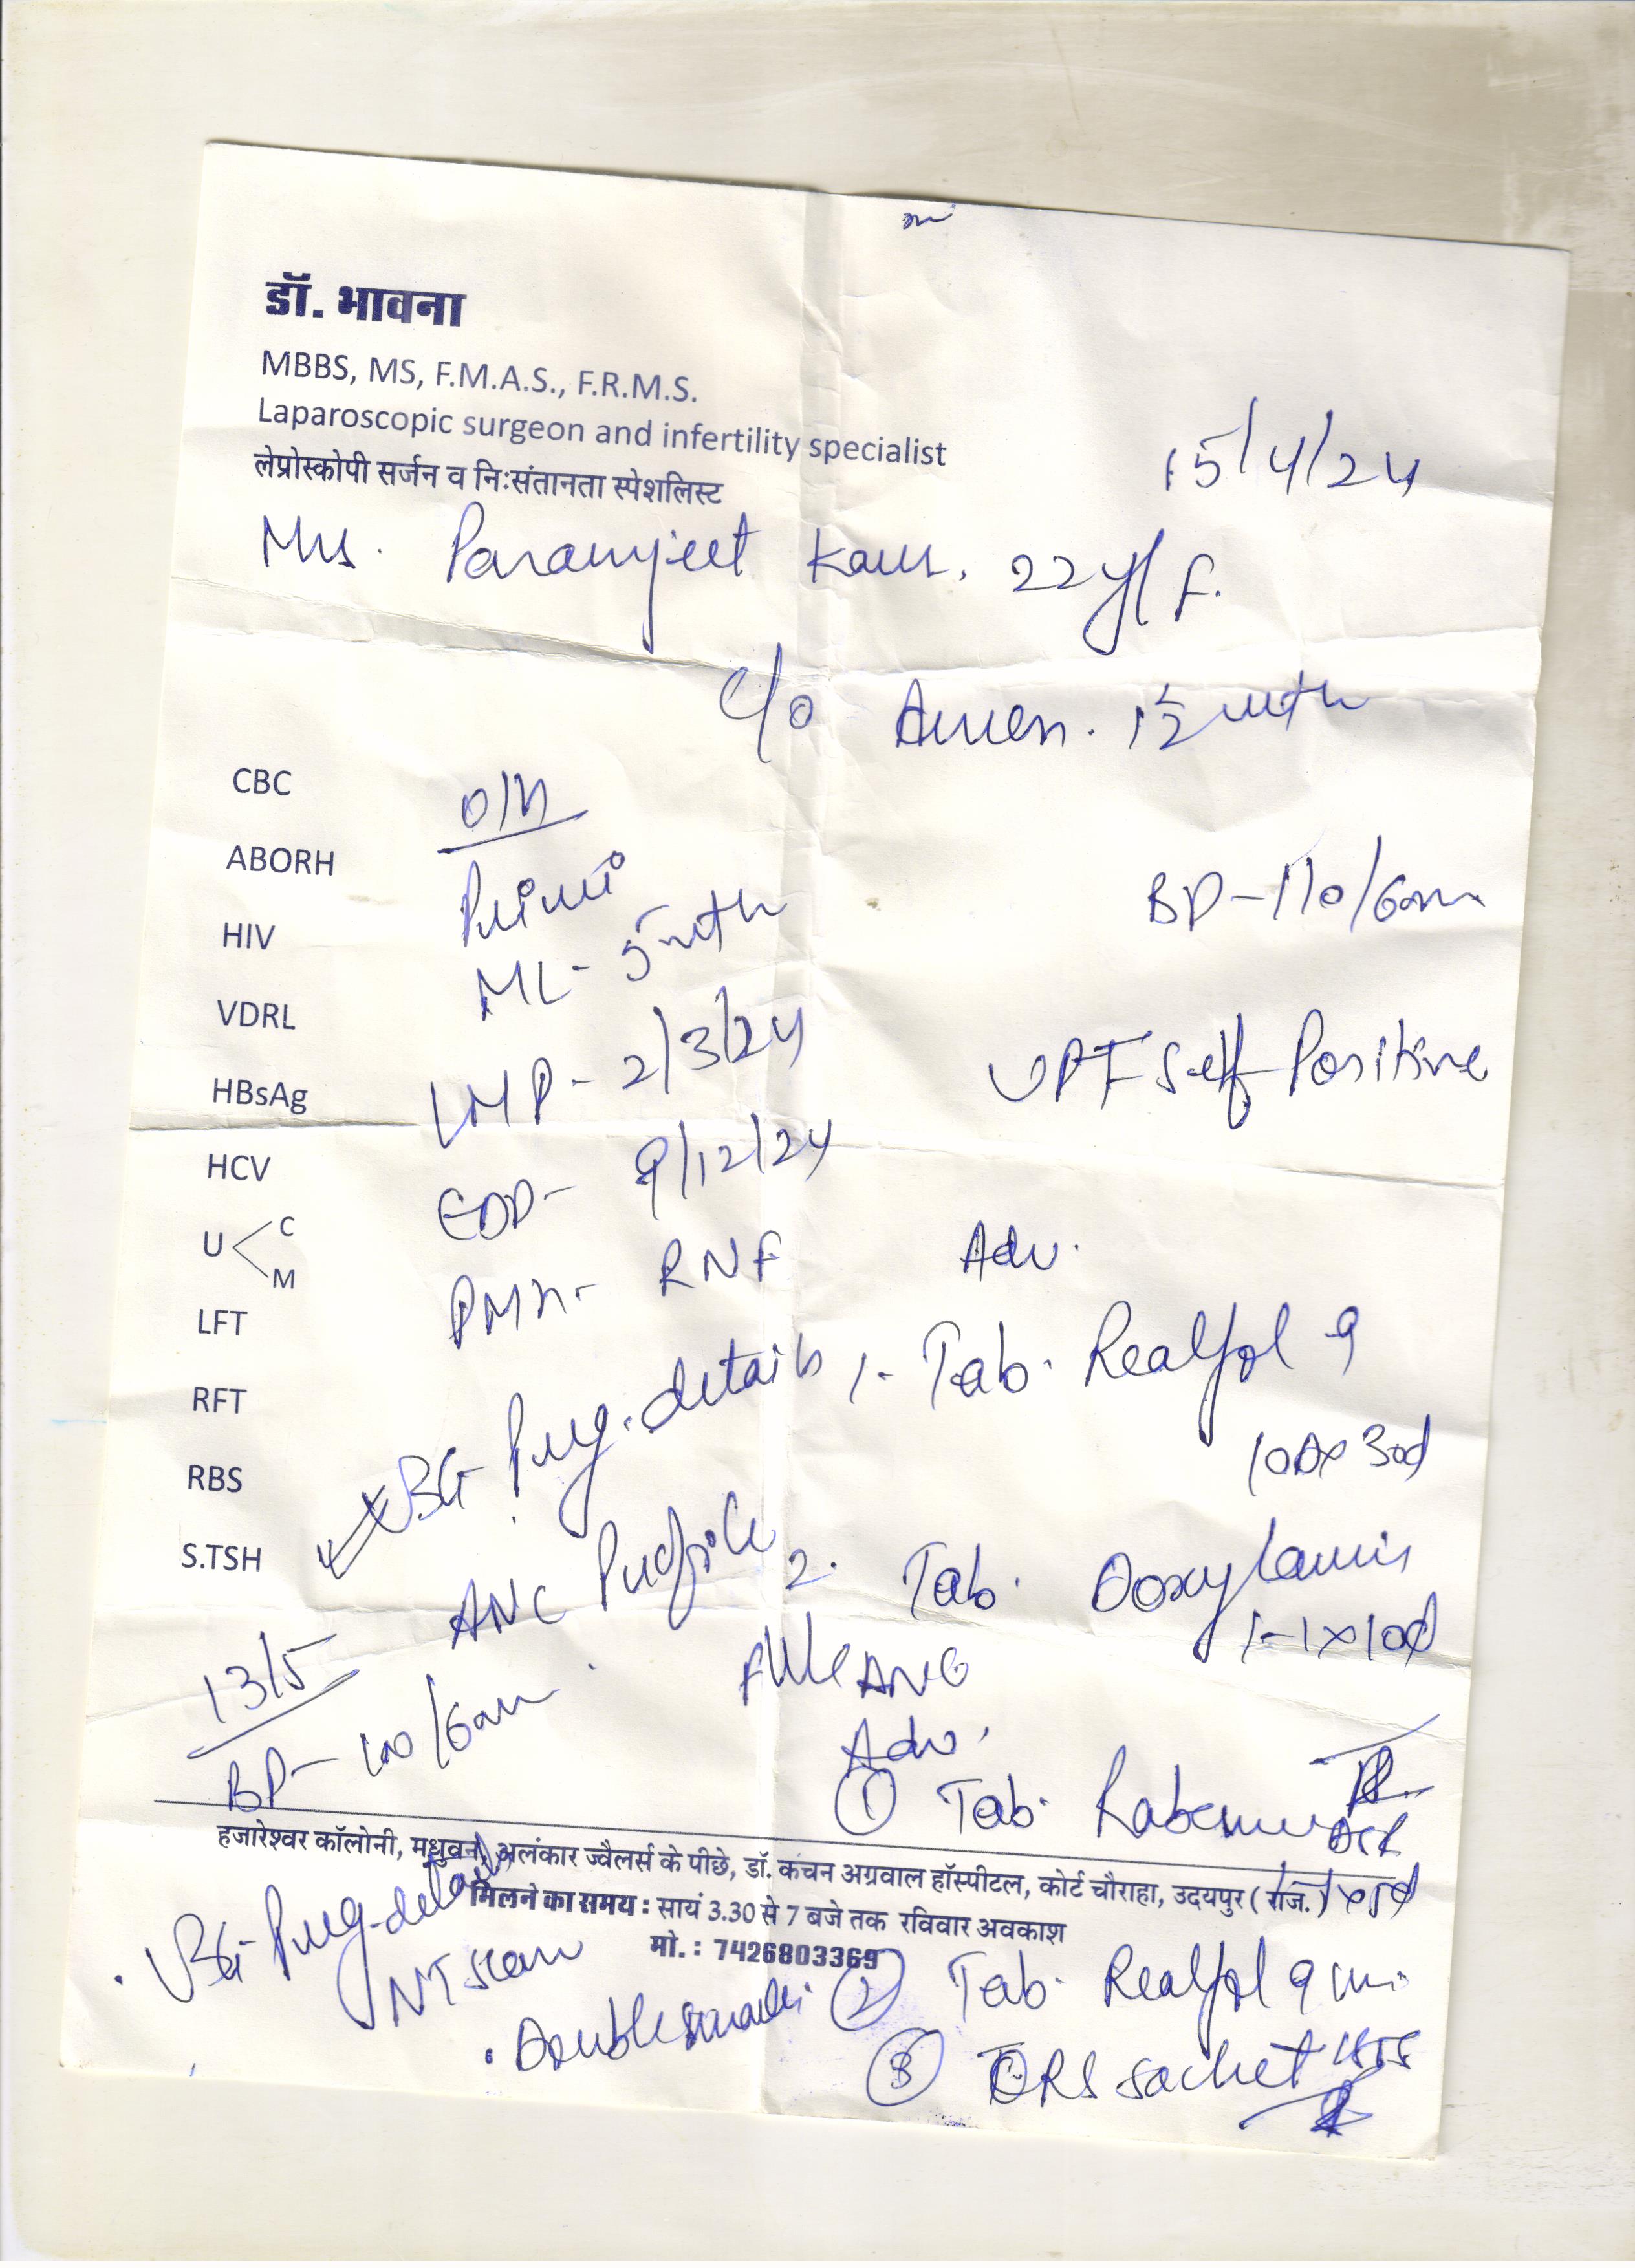 डॉ. भावना
MBBS, MS, F.M.A.S., F.R.M.S.
Laparoscopic surgeon and infertility specialist
लेप्रोस्कोपी सर्जन व निःसंतानता स्पेशलिस्ट
15/4/24
Mrs. Paramjeet Kaur. 22y/F.
C/o Amen. 1½ mth
CBC
ABORH
HIV
VDRL
HBsAg
HCV
U < C M
LFT
RFT
RBS
S.TSH
O/H
Primi
ML- 5mth
LMP- 2/3/24
EDD- 9/12/24
PMH- RNF
BP-110/60mm
UPT Self Positive
USG- Preg. details
ANC Profile
Adv.
1. Tab. Realfol 9
1OD x 30d
2. Tab. Doxylamin
1-1 x 10d
13/5
BP- 100/60mm
ANC
Adv.
① Tab.
x 15d
हजारेश्वर कॉलोनी, मधुवन, अलंकार ज्वैलर्स के पीछे, डॉ. कंचन अग्रवाल हॉस्पीटल, कोर्ट चौराहा, उदयपुर ( राज. )
मिलने का समय : सायं 3.30 से 7 बजे तक रविवार अवकाश
मो. : 7426803369
USG- Preg. details
NT scan
. Double marker
② Tab. Realfol 9
③ ORS sachet